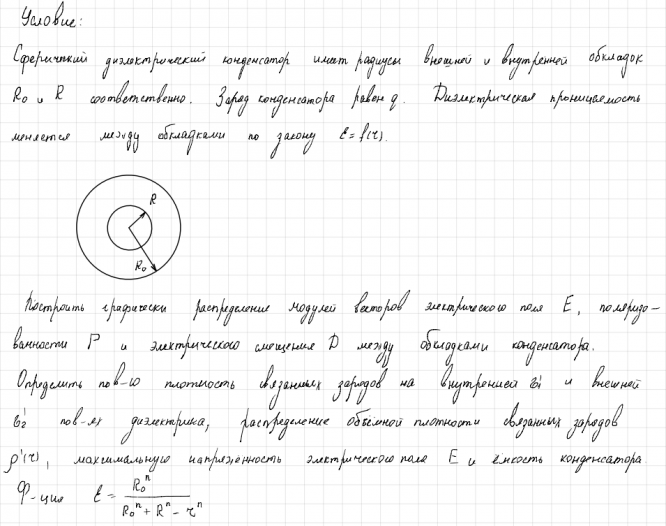 Условие:
Сферический диэлектрический конденсатор имеет радиусы внешней и внутренней обкладок
R₀ и R соответственно. Заряд конденсатора равен q. Диэлектрическая проницаемость
меняется между обкладками по закону ε = f(r).
R
R₀
Построить графически распределение модулей векторов электрического поля E, поляризо-
ванности P и электрического смещения D между обкладками конденсатора.
Определить пов-ю плотность связанных зарядов на внутренней σ₁' и внешней
σ₂' пов-ях диэлектрика, распределение объёмной плотности связанных зарядов
ρ'(r), максимальную напряжённость электрического поля E и ёмкость конденсатора.
Ф-ция ε = R₀ⁿ / (R₀ⁿ + Rⁿ - rⁿ)